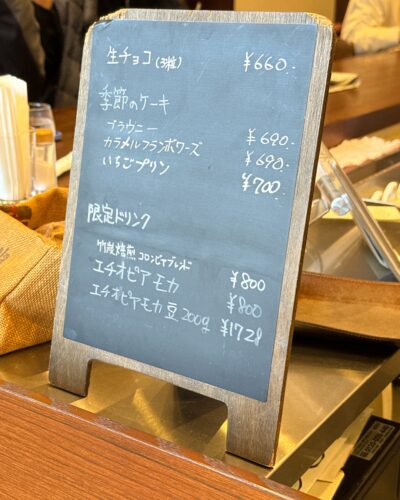 生チョコ(3粒) ¥660.-
季節のケーキ
ブラウニー ¥690.-
カラメルフランボワーズ ¥690.-
いちごプリン ¥700.-
限定ドリンク
竹炭焙煎コロンビアブレンド ¥800
エチオピアモカ ¥800
エチオピアモカ豆200g ¥1728